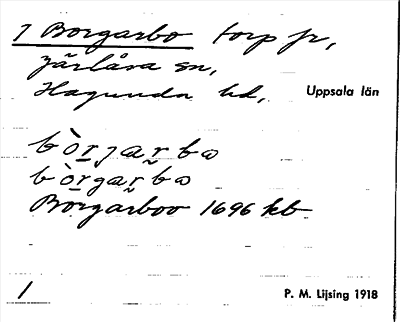 1 Borgarbo torp fr,
Järlåsa sn,
Hagunda hd, Uppsala län
bòrjarbo
bòrgarbo
Borgarboo 1696 kb
1 P. M. Lijsing 1918